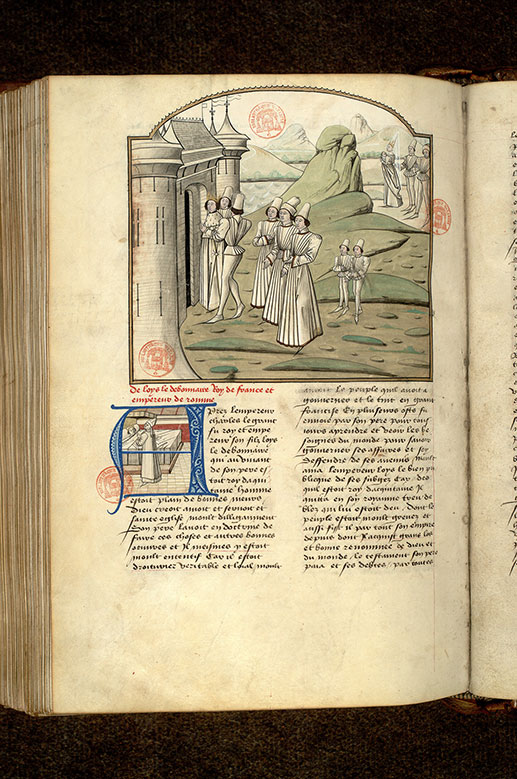 De loys le debonnaire Roy de france et
empereur de romme
Apres lempereur
charles le grant
fu roy et empe
reur son filz loys
le debonnaire
qui au viuant
de son pere es
toit roy daqui
taine homme
estoit plain de bonnes meurs
dieu creoit amoit et seruoit et
sainte eglise moult dilligaument
son pere lauoit endoctrine de
faire ces choses et autres bonnes
oeuures et il meismes y estoit
moult ententif Car il estoit
droiturier veritable et loial moult
amoit le peuple quil auoit a
gouuerner et le tint en grant
franchise En plusieurs osts fu
enuoie par son pere pour tous
iours aprendre et veoir les be
soignes du monde pour sauoir
gouuerner ses affaires et soy
deffendre de ses anemis Moult
ama lempereur loys le bien pu
blicque de ses subgez Car des
quil estoit roy dacquitaine Il
quitta en son royaume treu de
blez qui luy estoit deu dont le
peuple estoit moult greuez et
aussi fist il par tout son empire
depuis dont il acquist grans los
et bonne renommee de dieu et
du monde le testament son pere
paia et ses debtes par toutes